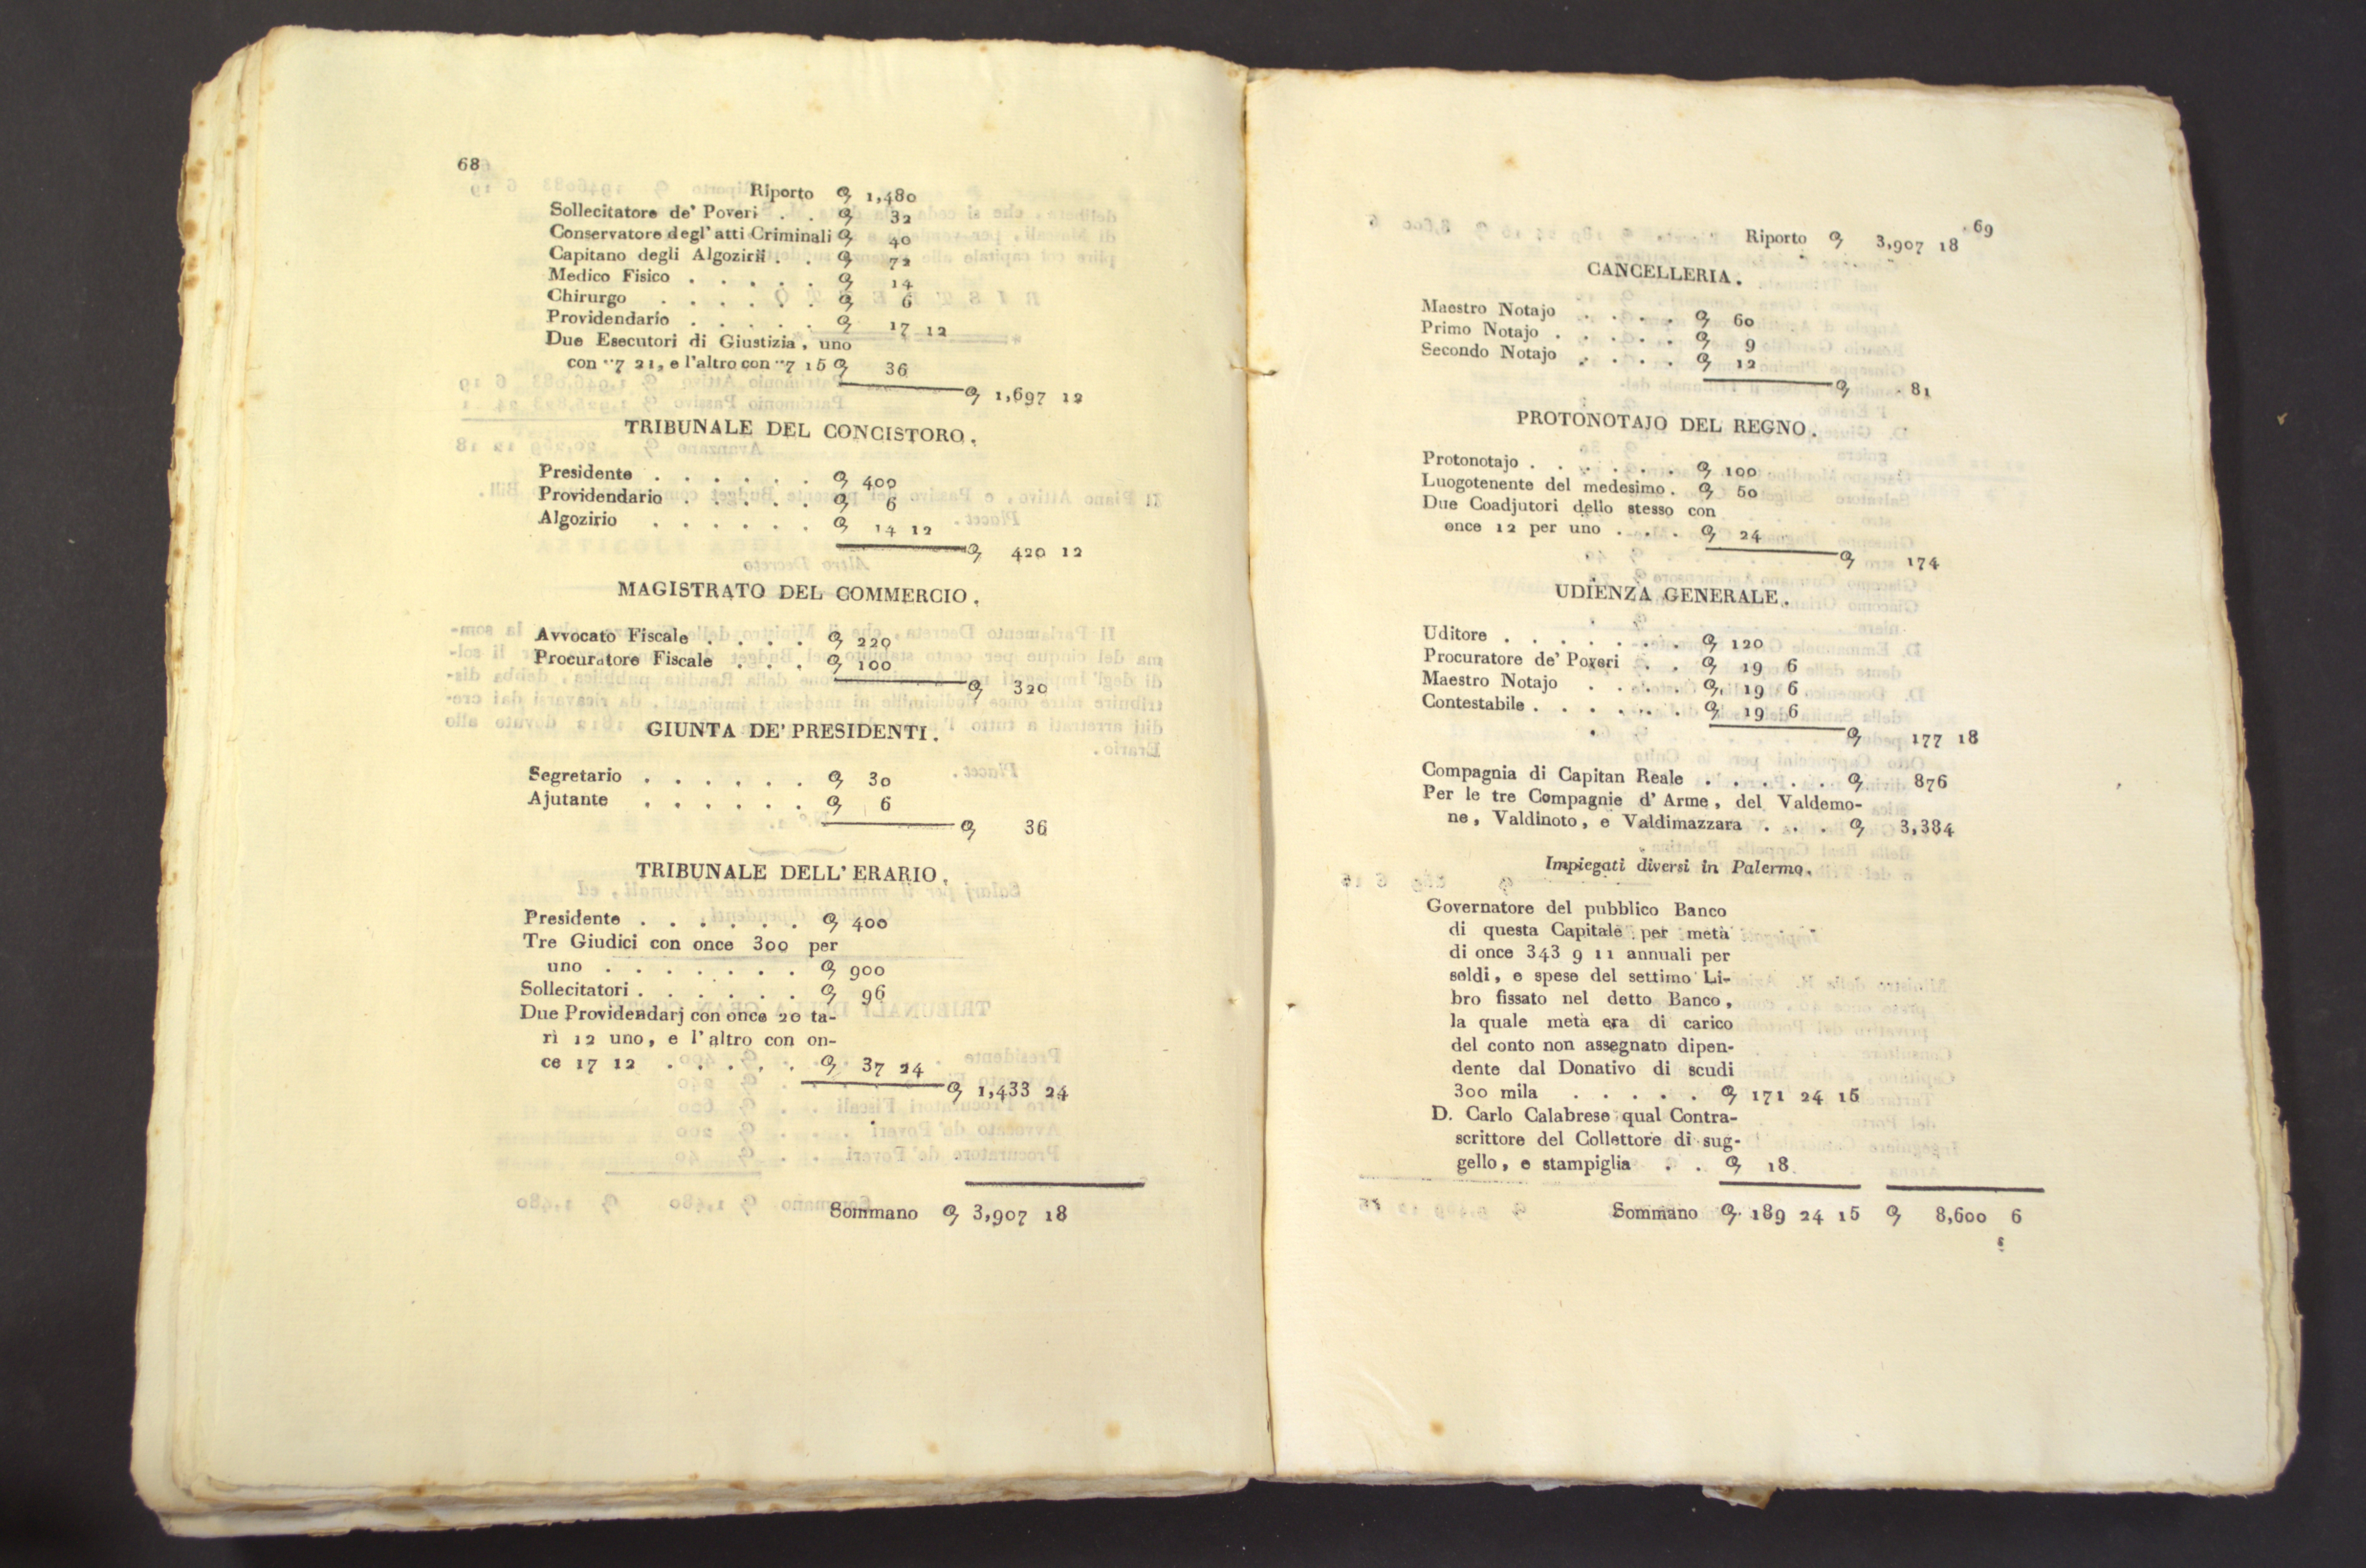 68
Riporto ꝯ 1,480
Sollecitatore de' Poveri . . ꝯ 32
Conservatore degl' atti Criminali ꝯ 40
Capitano degli Algozirii . . ꝯ 72
Medico Fisico . . . . . ꝯ 14
Chirurgo . . . . . . ꝯ 6
Providendario . . . . . ꝯ 17 12
Due Esecutori di Giustizia, uno
con "7 21, e l'altro con "7 15 ꝯ 36
ꝯ 1,697 12
TRIBUNALE DEL CONCISTORO.
Presidente . . . . . . ꝯ 400
Providendario . . . . . ꝯ 6
Algozirio . . . . . . ꝯ 14 12
ꝯ 420 12
MAGISTRATO DEL COMMERCIO.
Avvocato Fiscale . . . . ꝯ 220
Procuratore Fiscale . . . ꝯ 100
ꝯ 320
GIUNTA DE' PRESIDENTI.
Segretario . . . . . . ꝯ 30
Ajutante . . . . . . ꝯ 6
ꝯ 36
TRIBUNALE DELL' ERARIO.
Presidente . . . . . . ꝯ 400
Tre Giudici con once 300 per
uno . . . . . . . ꝯ 900
Sollecitatori . . . . . . ꝯ 96
Due Providendarj con once 20 ta-
rì 12 uno, e l' altro con on-
ce 17 12 . . . . . ꝯ 37 24
ꝯ 1,433 24
Sommano ꝯ 3,907 18
69
Riporto ꝯ 3,907 18
CANCELLERIA.
Maestro Notajo . . . . ꝯ 60
Primo Notajo . . . . . ꝯ 9
Secondo Notajo . . . . ꝯ 12
ꝯ 81
PROTONOTAJO DEL REGNO.
Protonotajo . . . . . . ꝯ 100
Luogotenente del medesimo . ꝯ 50
Due Coadjutori dello stesso con
once 12 per uno . . . ꝯ 24
ꝯ 174
UDIENZA GENERALE.
Uditore . . . . . . . ꝯ 120
Procuratore de' Poveri . . ꝯ 19 6
Maestro Notajo . . . . . ꝯ 19 6
Contestabile . . . . . . ꝯ 19 6
ꝯ 177 18
Compagnia di Capitan Reale . . . . . ꝯ 876
Per le tre Compagnie d' Arme, del Valdemo-
ne, Valdinoto, e Valdimazzara . . . ꝯ 3,384
Impiegati diversi in Palermo.
Governatore del pubblico Banco
di questa Capitale per metà
di once 343 9 11 annuali per
soldi, e spese del settimo Li-
bro fissato nel detto Banco,
la quale metà era di carico
del conto non assegnato dipen-
dente dal Donativo di scudi
300 mila . . . . . ꝯ 171 24 15
D. Carlo Calabrese qual Contra-
scrittore del Collettore di sug-
gello, e stampiglia . . ꝯ 18
Sommano ꝯ 189 24 15 ꝯ 8,600 6